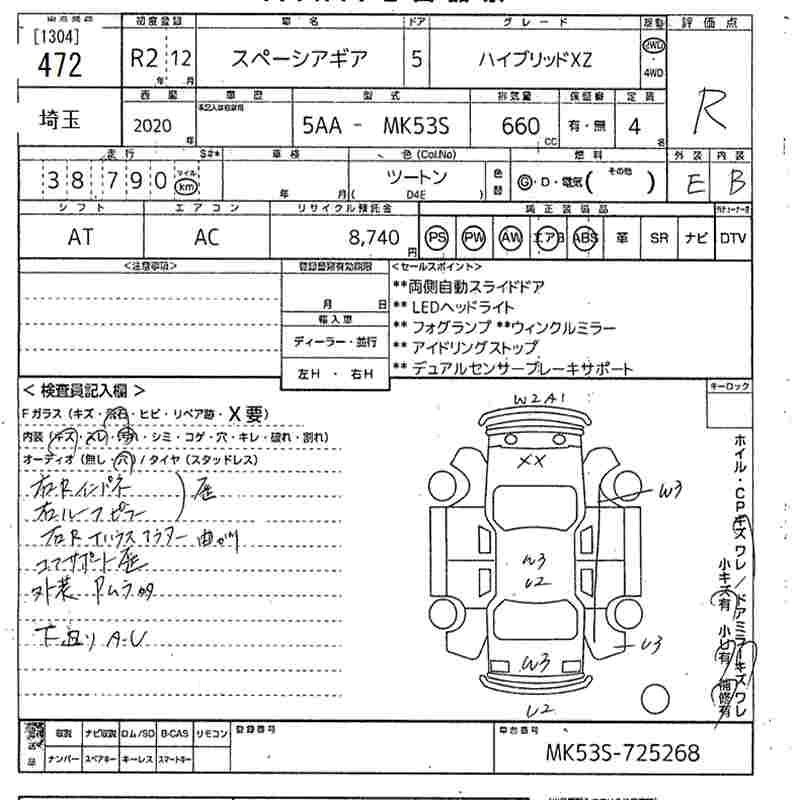 初度登録 車名 ドア グレード 駆動 評価点
[1304]
472 R2 12 スペーシアギア 5 ハイブリッドXZ 2WD ・ 4WD R
年 月
車歴 型式 排気量 定員
埼玉 2020 年 5AA - MK53S 660 CC 有・無 4 名
走行 車検 色(Col.No) 燃料 その他 外装 内装
38790 マイル km 年 月 ツートン ( D4E ) 色替 G・D・電気( ) E B
シフト エアコン リサイクル預託金 純正装備品
AT AC 8,740 円 PS PW AW エアB ABS 革 SR ナビ DTV
<注意事項> <セールスポイント>
**両側自動スライドドア
月 日 ** LEDヘッドライト
輸入車 ** フォグランプ **ウィンクルミラー
ディーラー・並行 ** アイドリングストップ
左H ・ 右H ** デュアルセンサーブレーキサポート
< 検査員記入欄 > キーロック
Fガラス (キズ・飛石・ヒビ・リペア跡・X要)
内装 (キズ・・シミ・コゲ・穴・キレ・破れ・割れ)
オーディオ (無し・穴) / タイヤ (スタッドレス)
右Rインパネ
右ルーフピラー
コアサポート
外装 ムラ
下廻り
W2 A1
XX
W3
W3
U2
W3
U3
U2
ホイル・CPキズ ワレ/ドアミラーキズワレ
小キズ有 小ヒ有 補修有
取説 ナビ取説 ロム/SD B-CAS リモコン 登録番号 車台番号
ナンバー スペアキー キーレス スマートキー MK53S-725268